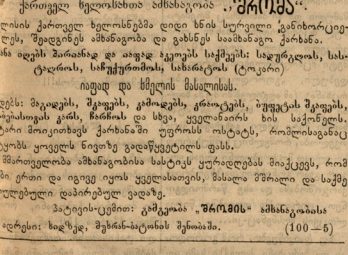 ქართველ ხელოსანთა ამხანაგობა „შრომა“.
ლისის ქართველ ხელოსნებმა დიდი ხნის სურვილი განიხორციე-
ლეს, შეადგინეს ამხანაგობა და გახსნეს საამხანაგო ქარხანა.
იღებს პირიანად და იაფად აკეთებს საქმეებს: სადურგლოს, სას-
ტალროს, საჩუქურთმოს, სახარატოს (ტოკარი)
იაფად და ხმელის მასალისას.
დებს: მაგიდებს, შკაფებს, კამოდებს, კრაოტებს, ბუფეტის შკაფებს,
კარს, ჩარჩოს და სხვა, ყველანაირს ხის საქონელს.
მოიკითხავს ქარხანაში უფროსს ოსტატს, რომლისაგანაც
ტყობს ყოველს ნივთზე გადაწყვეტილს ფასს.
მმართველობა ამხანაგობისა სასტიკს ყურადღებას მიაქცევს, რომ
ერთი და იგივე იყოს ყველასათვის, მასალა მშრალი და საქმე
ულებული დაპირებულ ვადაზე.
პატივის-ცემით: გამგეობა „შრომის“ ამხანაგობისა
ადრესი: მუხრან-ბატონის შენობაში. (100—5)